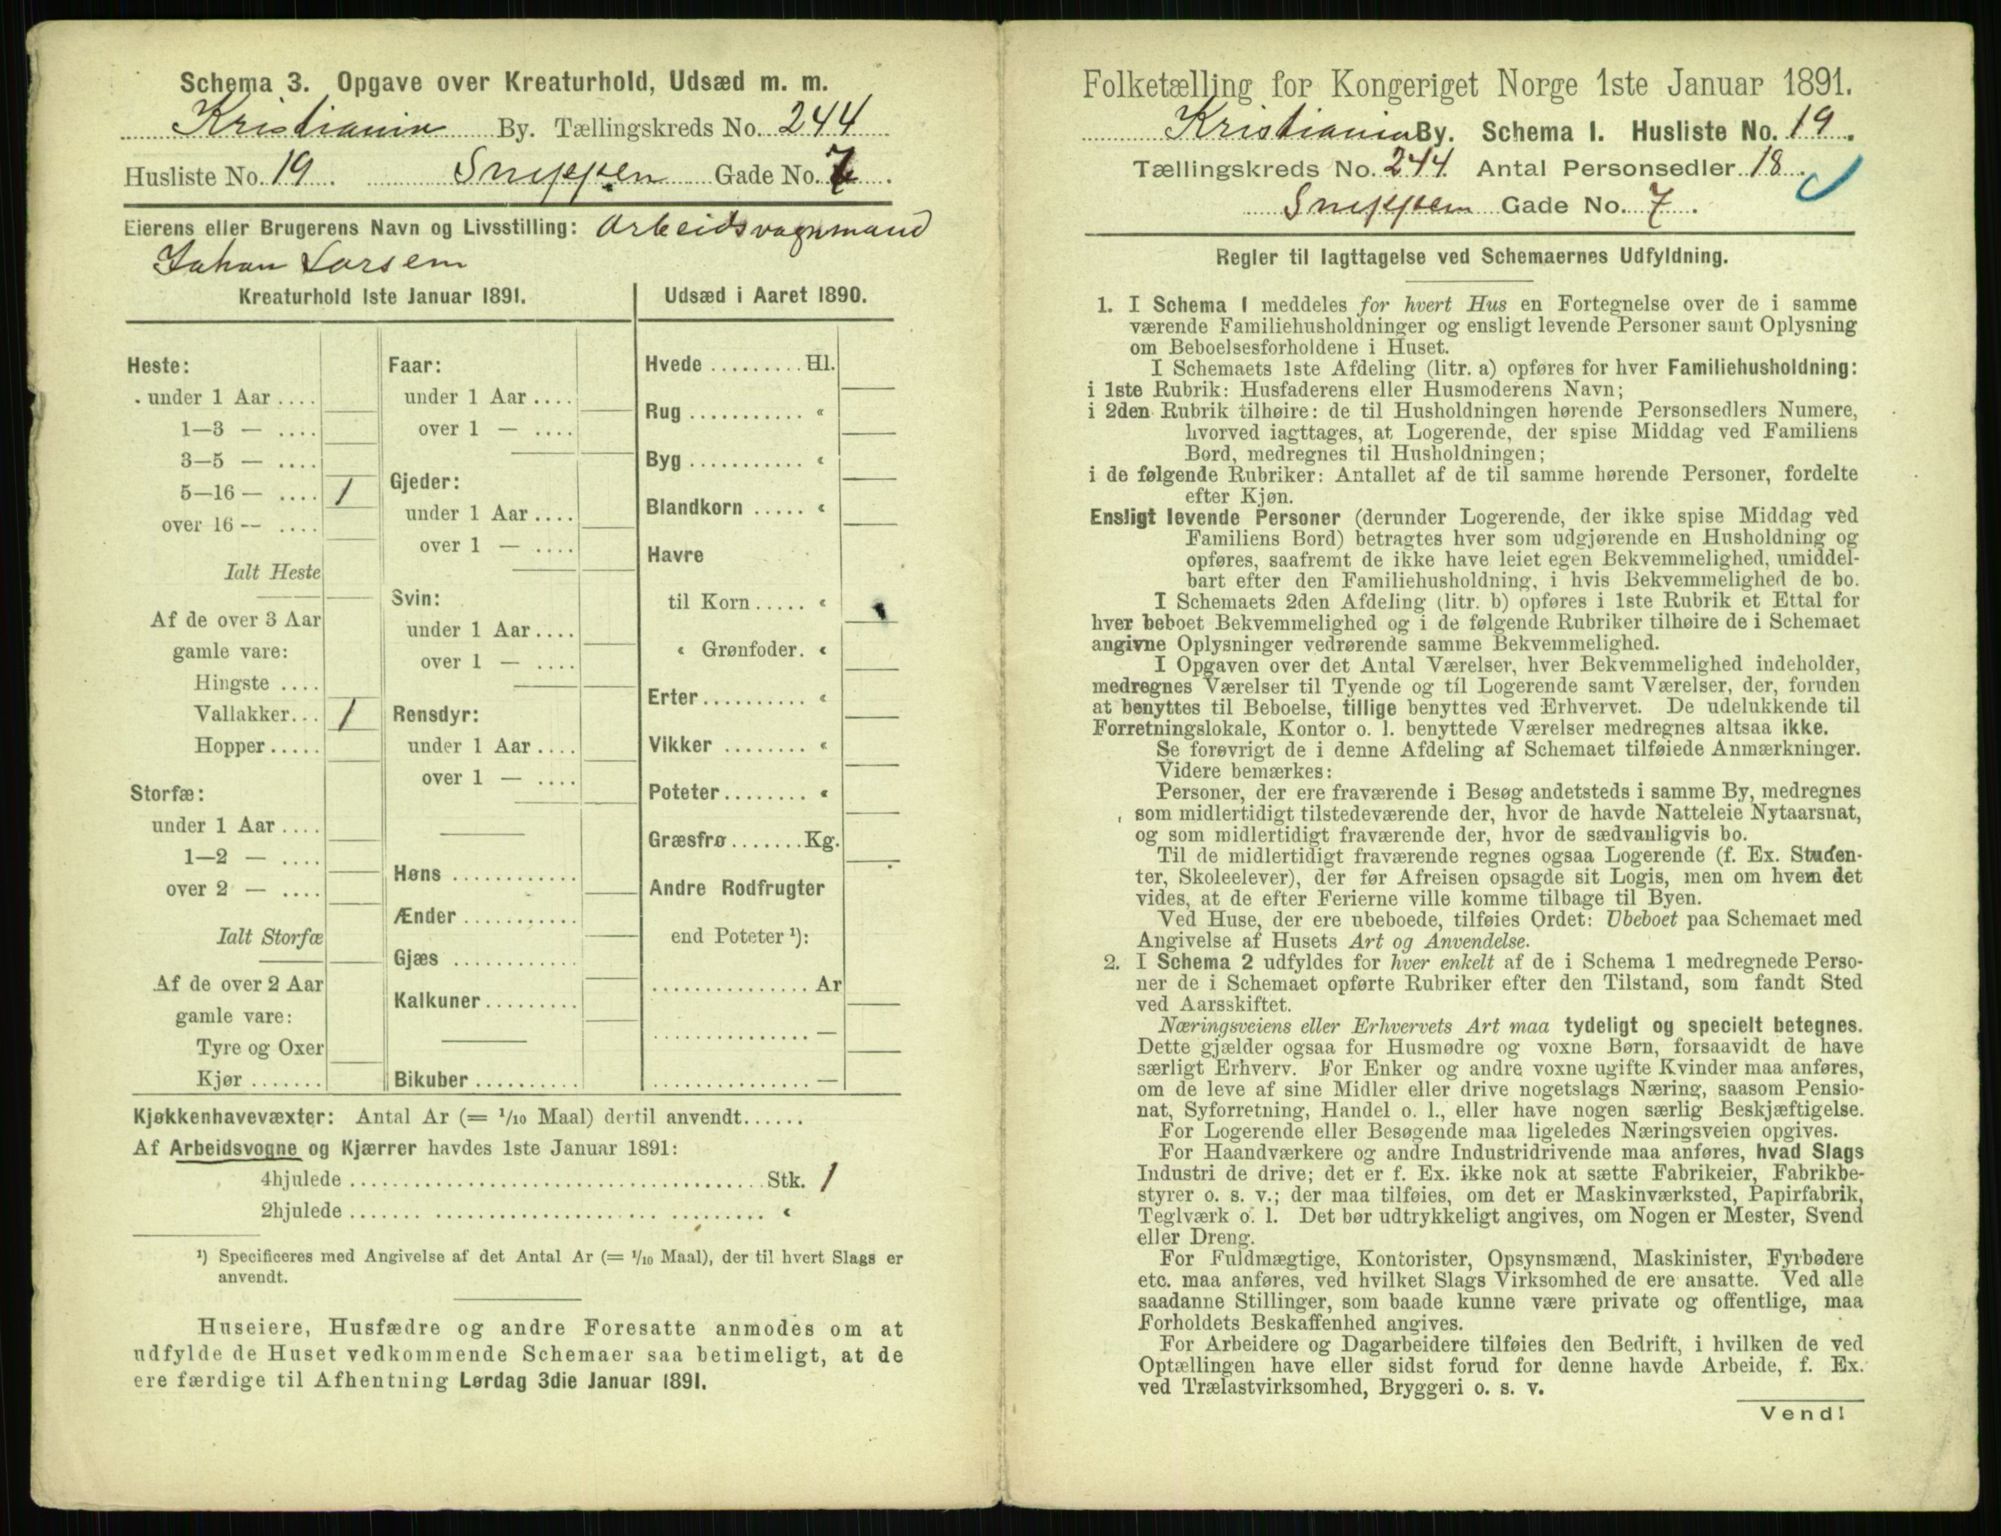 Schema 3. Opgave over Kreaturhold, Udsæd m. m.
Kristiania By. Tællingskreds No. 244
Husliste No. 19. Snippen Gade No. 7.
Eierens eller Brugerens Navn og Livsstilling: Arbeidsvognmand
Johan Larsen
Kreaturhold 1ste Januar 1891.
Heste:
under 1 Aar ....
1—3 — ....
3—5 — ....
5—16 — .... 1
over 16 — ....
Ialt Heste
Af de over 3 Aar
gamle vare:
Hingste ....
Vallakker... 1
Hopper.....
Storfæ:
under 1 Aar ....
1—2 — ....
over 2 — ....
Ialt Storfæ
Af de over 2 Aar
gamle vare:
Tyre og Oxer
Kjør .......
Faar:
under 1 Aar ....
over 1 — ....
Gjeder:
under 1 Aar ....
over 1 — ....
Svin:
under 1 Aar ....
over 1 — ....
Rensdyr:
under 1 Aar ....
over 1 — ....
Høns ............
Ænder ...........
Gjæs ............
Kalkuner .........
Bikuber ..........
Udsæd i Aaret 1890.
Hvede ......... Hl.
Rug ........... «
Byg ........... «
Blandkorn ..... «
Havre
til Korn ..... «
« Grønfoder. «
Erter .......... «
Vikker ........ «
Poteter ........ «
Græsfrø ....... Kg.
Andre Rodfrugter
end Poteter ¹):
............... Ar
............... —
............... —
Kjøkkenhavevæxter: Antal Ar (= 1/10 Maal) dertil anvendt......
Af Arbeidsvogne og Kjærrer havdes 1ste Januar 1891:
4hjulede ........................................ Stk. 1
2hjulede ........................................ «
¹) Specificeres med Angivelse af det Antal Ar (= 1/10 Maal), der til hvert Slags er
anvendt.
Huseiere, Husfædre og andre Foresatte anmodes om at
udfylde de Huset vedkommende Schemaer saa betimeligt, at de
ere færdige til Afhentning Lørdag 3die Januar 1891.
Folketælling for Kongeriget Norge 1ste Januar 1891.
Kristiania By. Schema 1. Husliste No. 19.
Tællingskreds No. 244. Antal Personsedler 18.
Snippen Gade No. 7.
Regler til Iagttagelse ved Schemaernes Udfyldning.
1. I Schema 1 meddeles for hvert Hus en Fortegnelse over de i samme
værende Familiehusholdninger og ensligt levende Personer samt Oplysning
om Beboelsesforholdene i Huset.
I Schemaets 1ste Afdeling (litr. a) opføres for hver Familiehusholdning:
i 1ste Rubrik: Husfaderens eller Husmoderens Navn;
i 2den Rubrik tilhøire: de til Husholdningen hørende Personsedlers Numere,
hvorved iagttages, at Logerende, der spise Middag ved Familiens
Bord, medregnes til Husholdningen;
i de følgende Rubriker: Antallet af de til samme hørende Personer, fordelte
efter Kjøn.
Ensligt levende Personer (derunder Logerende, der ikke spise Middag ved
Familiens Bord) betragtes hver som udgjørende en Husholdning og
opføres, saafremt de ikke have leiet egen Bekvemmelighed, umiddel-
bart efter den Familiehusholdning, i hvis Bekvemmelighed de bo.
I Schemaets 2den Afdeling (litr. b) opføres i 1ste Rubrik et Ettal for
hver beboet Bekvemmelighed og i de følgende Rubriker tilhøire de i Schemaet
angivne Oplysninger vedrørende samme Bekvemmelighed.
I Opgaven over det Antal Værelser, hver Bekvemmelighed indeholder,
medregnes Værelser til Tyende og til Logerende samt Værelser, der, foruden
at benyttes til Beboelse, tillige benyttes ved Erhvervet. De udelukkende til
Forretningslokale, Kontor o. l. benyttede Værelser medregnes altsaa ikke.
Se forøvrigt de i denne Afdeling af Schemaet tilføiede Anmærkninger.
Videre bemærkes:
Personer, der ere fraværende i Besøg andetsteds i samme By, medregnes
som midlertidigt tilstedeværende der, hvor de havde Natteleie Nytaarsnat,
og som midlertidigt fraværende der, hvor de sædvanligvis bo.
Til de midlertidigt fraværende regnes ogsaa Logerende (f. Ex. Studen-
ter, Skoleelever), der før Afreisen opsagde sit Logis, men om hvem det
vides, at de efter Ferierne ville komme tilbage til Byen.
Ved Huse, der ere ubeboede, tilføies Ordet: Ubeboet paa Schemaet med
Angivelse af Husets Art og Anvendelse.
2. I Schema 2 udfyldes for hver enkelt af de i Schema 1 medregnede Perso-
ner de i Schemaet opførte Rubriker efter den Tilstand, som fandt Sted
ved Aarsskiftet.
Næringsveiens eller Erhvervets Art maa tydeligt og specielt betegnes.
Dette gjælder ogsaa for Husmødre og voxne Børn, forsaavidt de have
særligt Erhverv. For Enker og andre voxne ugifte Kvinder maa anføres,
om de leve af sine Midler eller drive nogetslags Næring, saasom Pensio-
nat, Syforretning, Handel o. l., eller have nogen særlig Beskjæftigelse.
For Logerende eller Besøgende maa ligeledes Næringsveien opgives.
For Haandværkere og andre Industridrivende maa anføres, hvad Slags
Industri de drive; det er f. Ex. ikke nok at sætte Fabrikeier, Fabrikbe-
styrer o. s. v.; der maa tilføies, om det er Maskinværksted, Papirfabrik,
Teglværk o. l. Det bør udtrykkeligt angives, om Nogen er Mester, Svend
eller Dreng.
For Fuldmægtige, Kontorister, Opsynsmænd, Maskinister, Fyrbødere
etc. maa anføres, ved hvilket Slags Virksomhed de ere ansatte. Ved alle
saadanne Stillinger, som baade kunne være private og offentlige, maa
Forholdets Beskaffenhed angives.
For Arbeidere og Dagarbeidere tilføies den Bedrift, i hvilken de ved
Optællingen have eller sidst forud for denne havde Arbeide, f. Ex.
ved Trælastvirksomhed, Bryggeri o. s. v.
Vend!